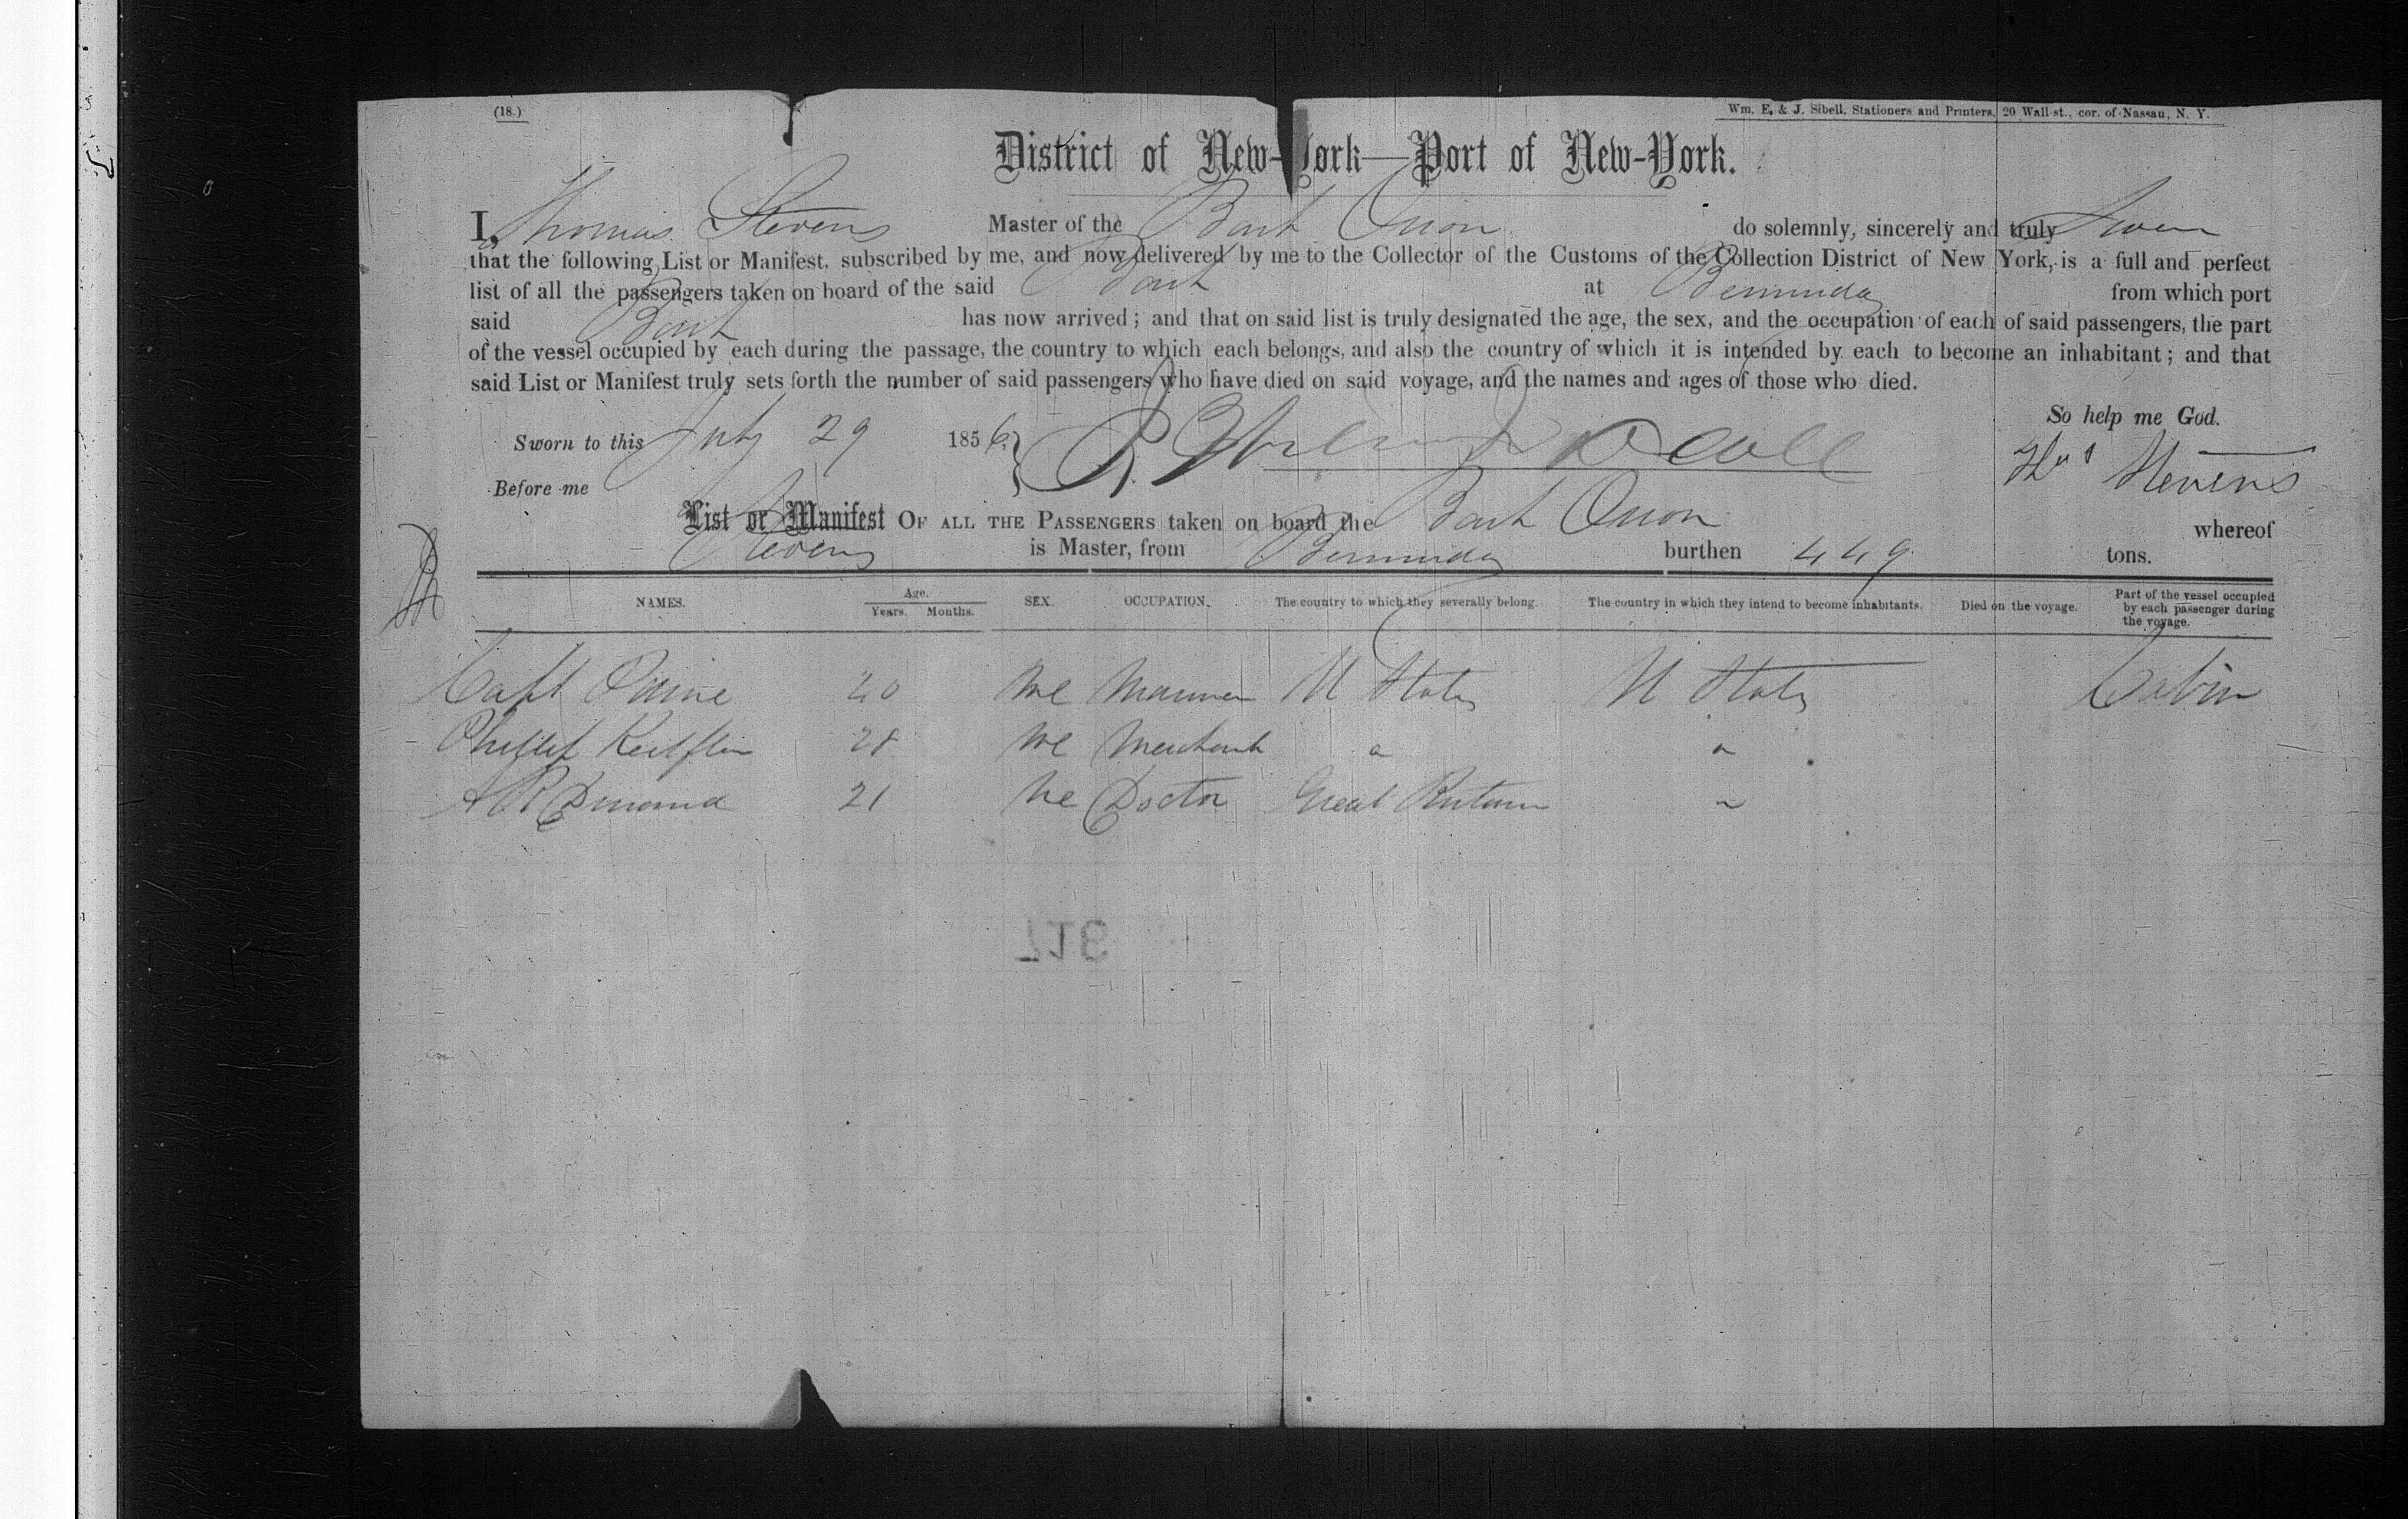 (18.)
Wm. E. & J. Sibell, Stationers and Printers, 20 Wall-st., cor. of Nassau, N. Y.
District of New-York—Port of New-York.
I, Thomas Stevens Master of the Bark Orion do solemnly, sincerely and truly Swear
that the following List or Manifest, subscribed by me, and now delivered by me to the Collector of the Customs of the Collection District of New York, is a full and perfect
list of all the passengers taken on board of the said Bark at Bermuda from which port
said Bark has now arrived; and that on said list is truly designated the age, the sex, and the occupation of each of said passengers, the part
of the vessel occupied by each during the passage, the country to which each belongs, and also the country of which it is intended by each to become an inhabitant; and that
said List or Manifest truly sets forth the number of said passengers who have died on said voyage, and the names and ages of those who died.
So help me God.
Sworn to this July 29 1856
Thos Stevens
Before me
List or Manifest OF ALL THE PASSENGERS taken on board the Bark Orion whereof
Stevens is Master, from Bermuda burthen 449 tons.
NAMES. Age. Years. Months. SEX. OCCUPATION. The country to which they severally belong. The country in which they intend to become inhabitants. Died on the voyage. Part of the vessel occupied by each passenger during the voyage.
Capt Paine 20 Me Mariner U States U States Cabin
28 Me Merchant " "
21 Me Doctor Great Britain "
716